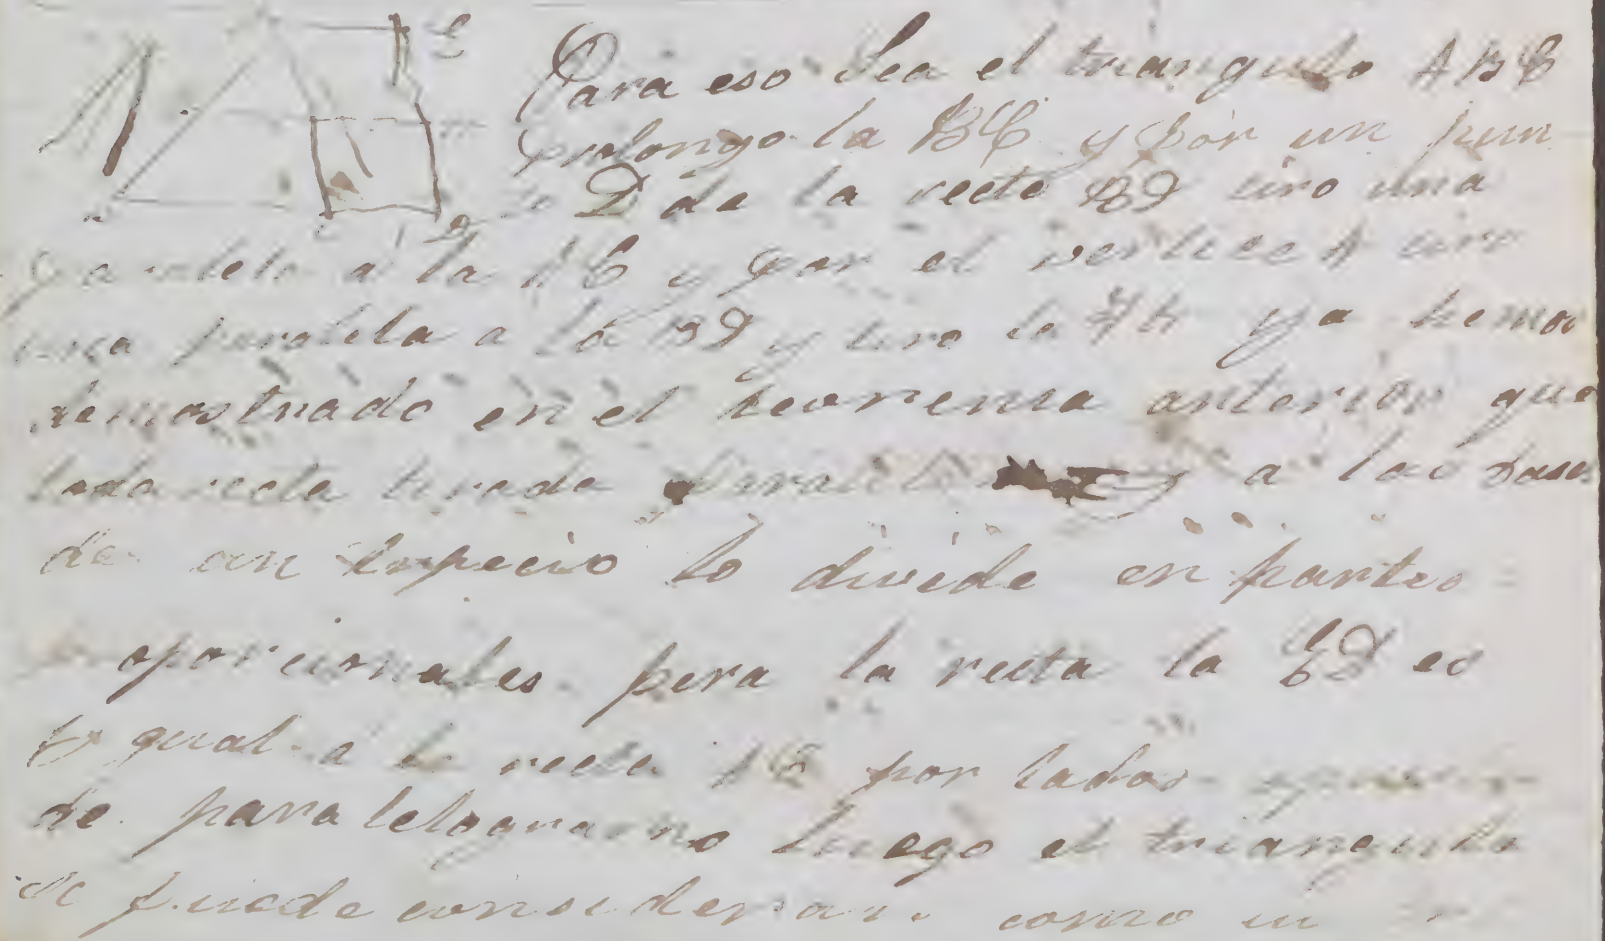 Para eso sea el triangulo ABC
prolongo la BC y por un pun
to D de la recta BD tiro una
paralela a la AC y por el vertice A tiro
una paralela a la BD y tiro la ya hemos
demostrado en el teorema anterior que
toda recta tirada a las bases
de un trapecio lo divide en partes
oporcionales pera la recta la ED es
ygual a la recta AC por lados
de paralelogramo luego el triangulo
se puede considerar como un